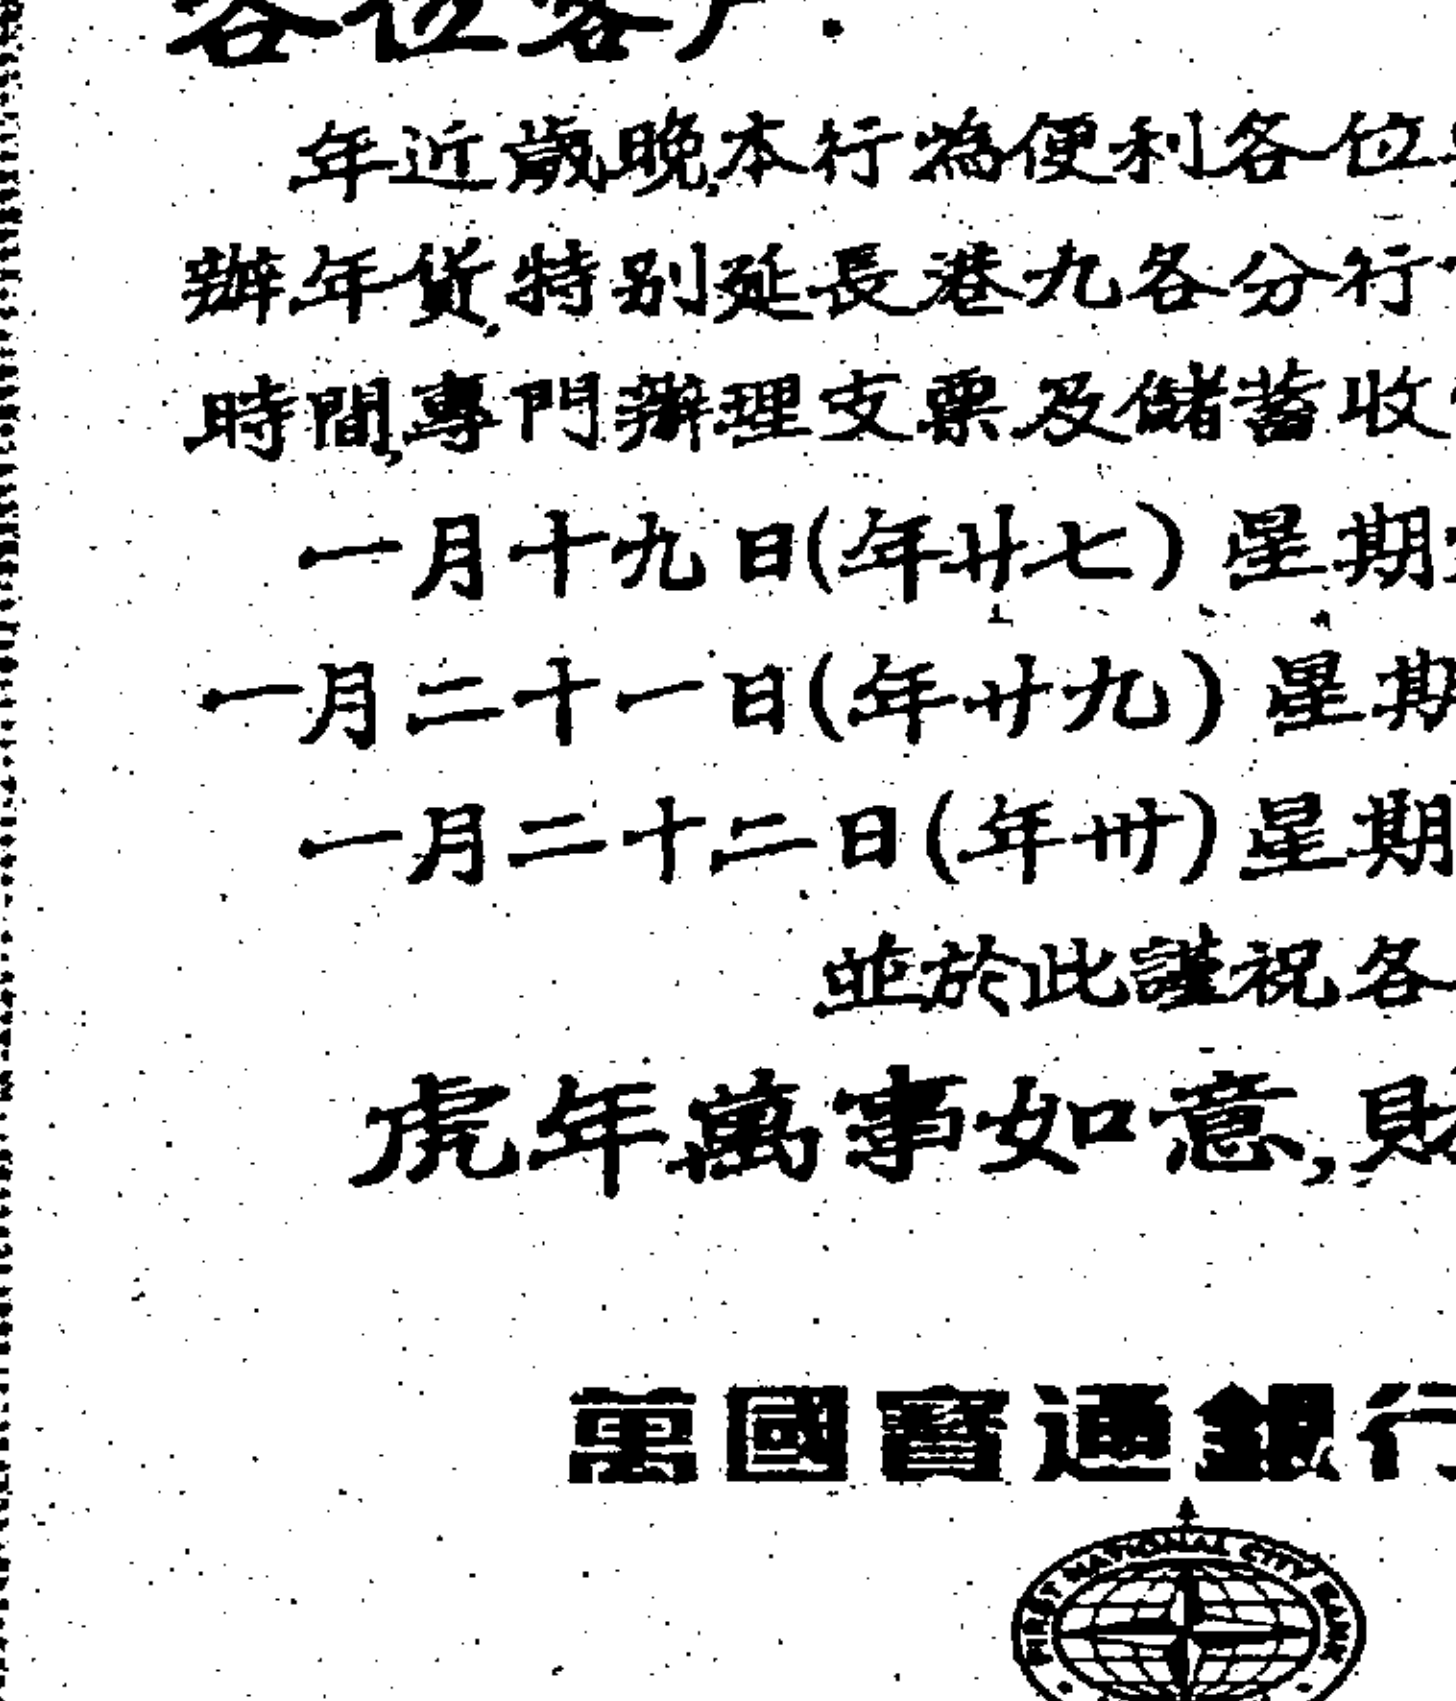 各位客戶.
年近歲晚,本行為便利各位
辦年貨,特別延長港九各分行
時間,專門辦理支票及儲蓄收
一月十九日(年廿七)星期
一月二十一日(年廿九)星期
一月二十二日(年卅)星期
並於此謹祝各
虎年萬事如意,財
萬國寶通銀行
FIRST NATIONAL CITY BANK